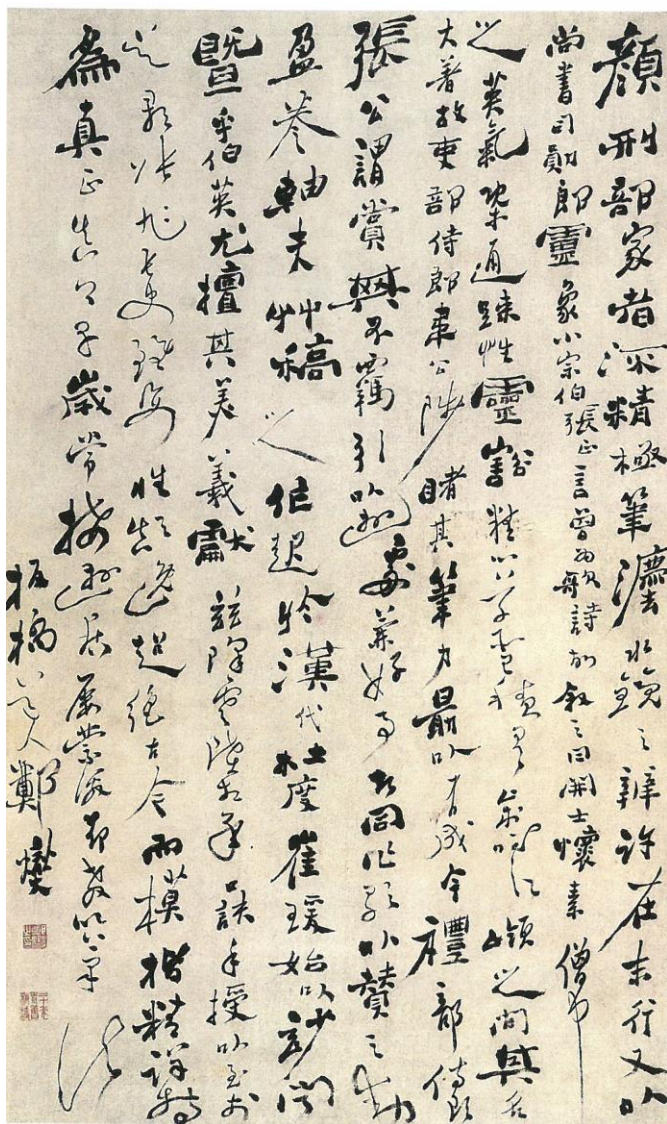 顏刑部家者流精極筆灋水鏡之辨許在末行又以
尚書司勳郎靈象小宗伯張正言曾為歌詩故敘之曰開士懷素僧中
之英氣槩通疎性靈豁精心草聖積有歲時江嶺之間其名
大著故吏部侍郎韋公陟睹其筆力勗以有成今禮部侍郎
張公謂賞其不羈引以遊處兼好事者同作歌以贊之動
盈卷軸夫艸稿之作起於漢代杜度崔瑗始以妙聞
暨乎伯英尤擅其美羲獻茲降虞陸相承口訣手授以至於
吳郡張旭長史雖姿性顛逸超絕古今而模楷精詳特
為真正真卿早歲常接遊居屢蒙激昂教以筆法
板橋道人鄭燮